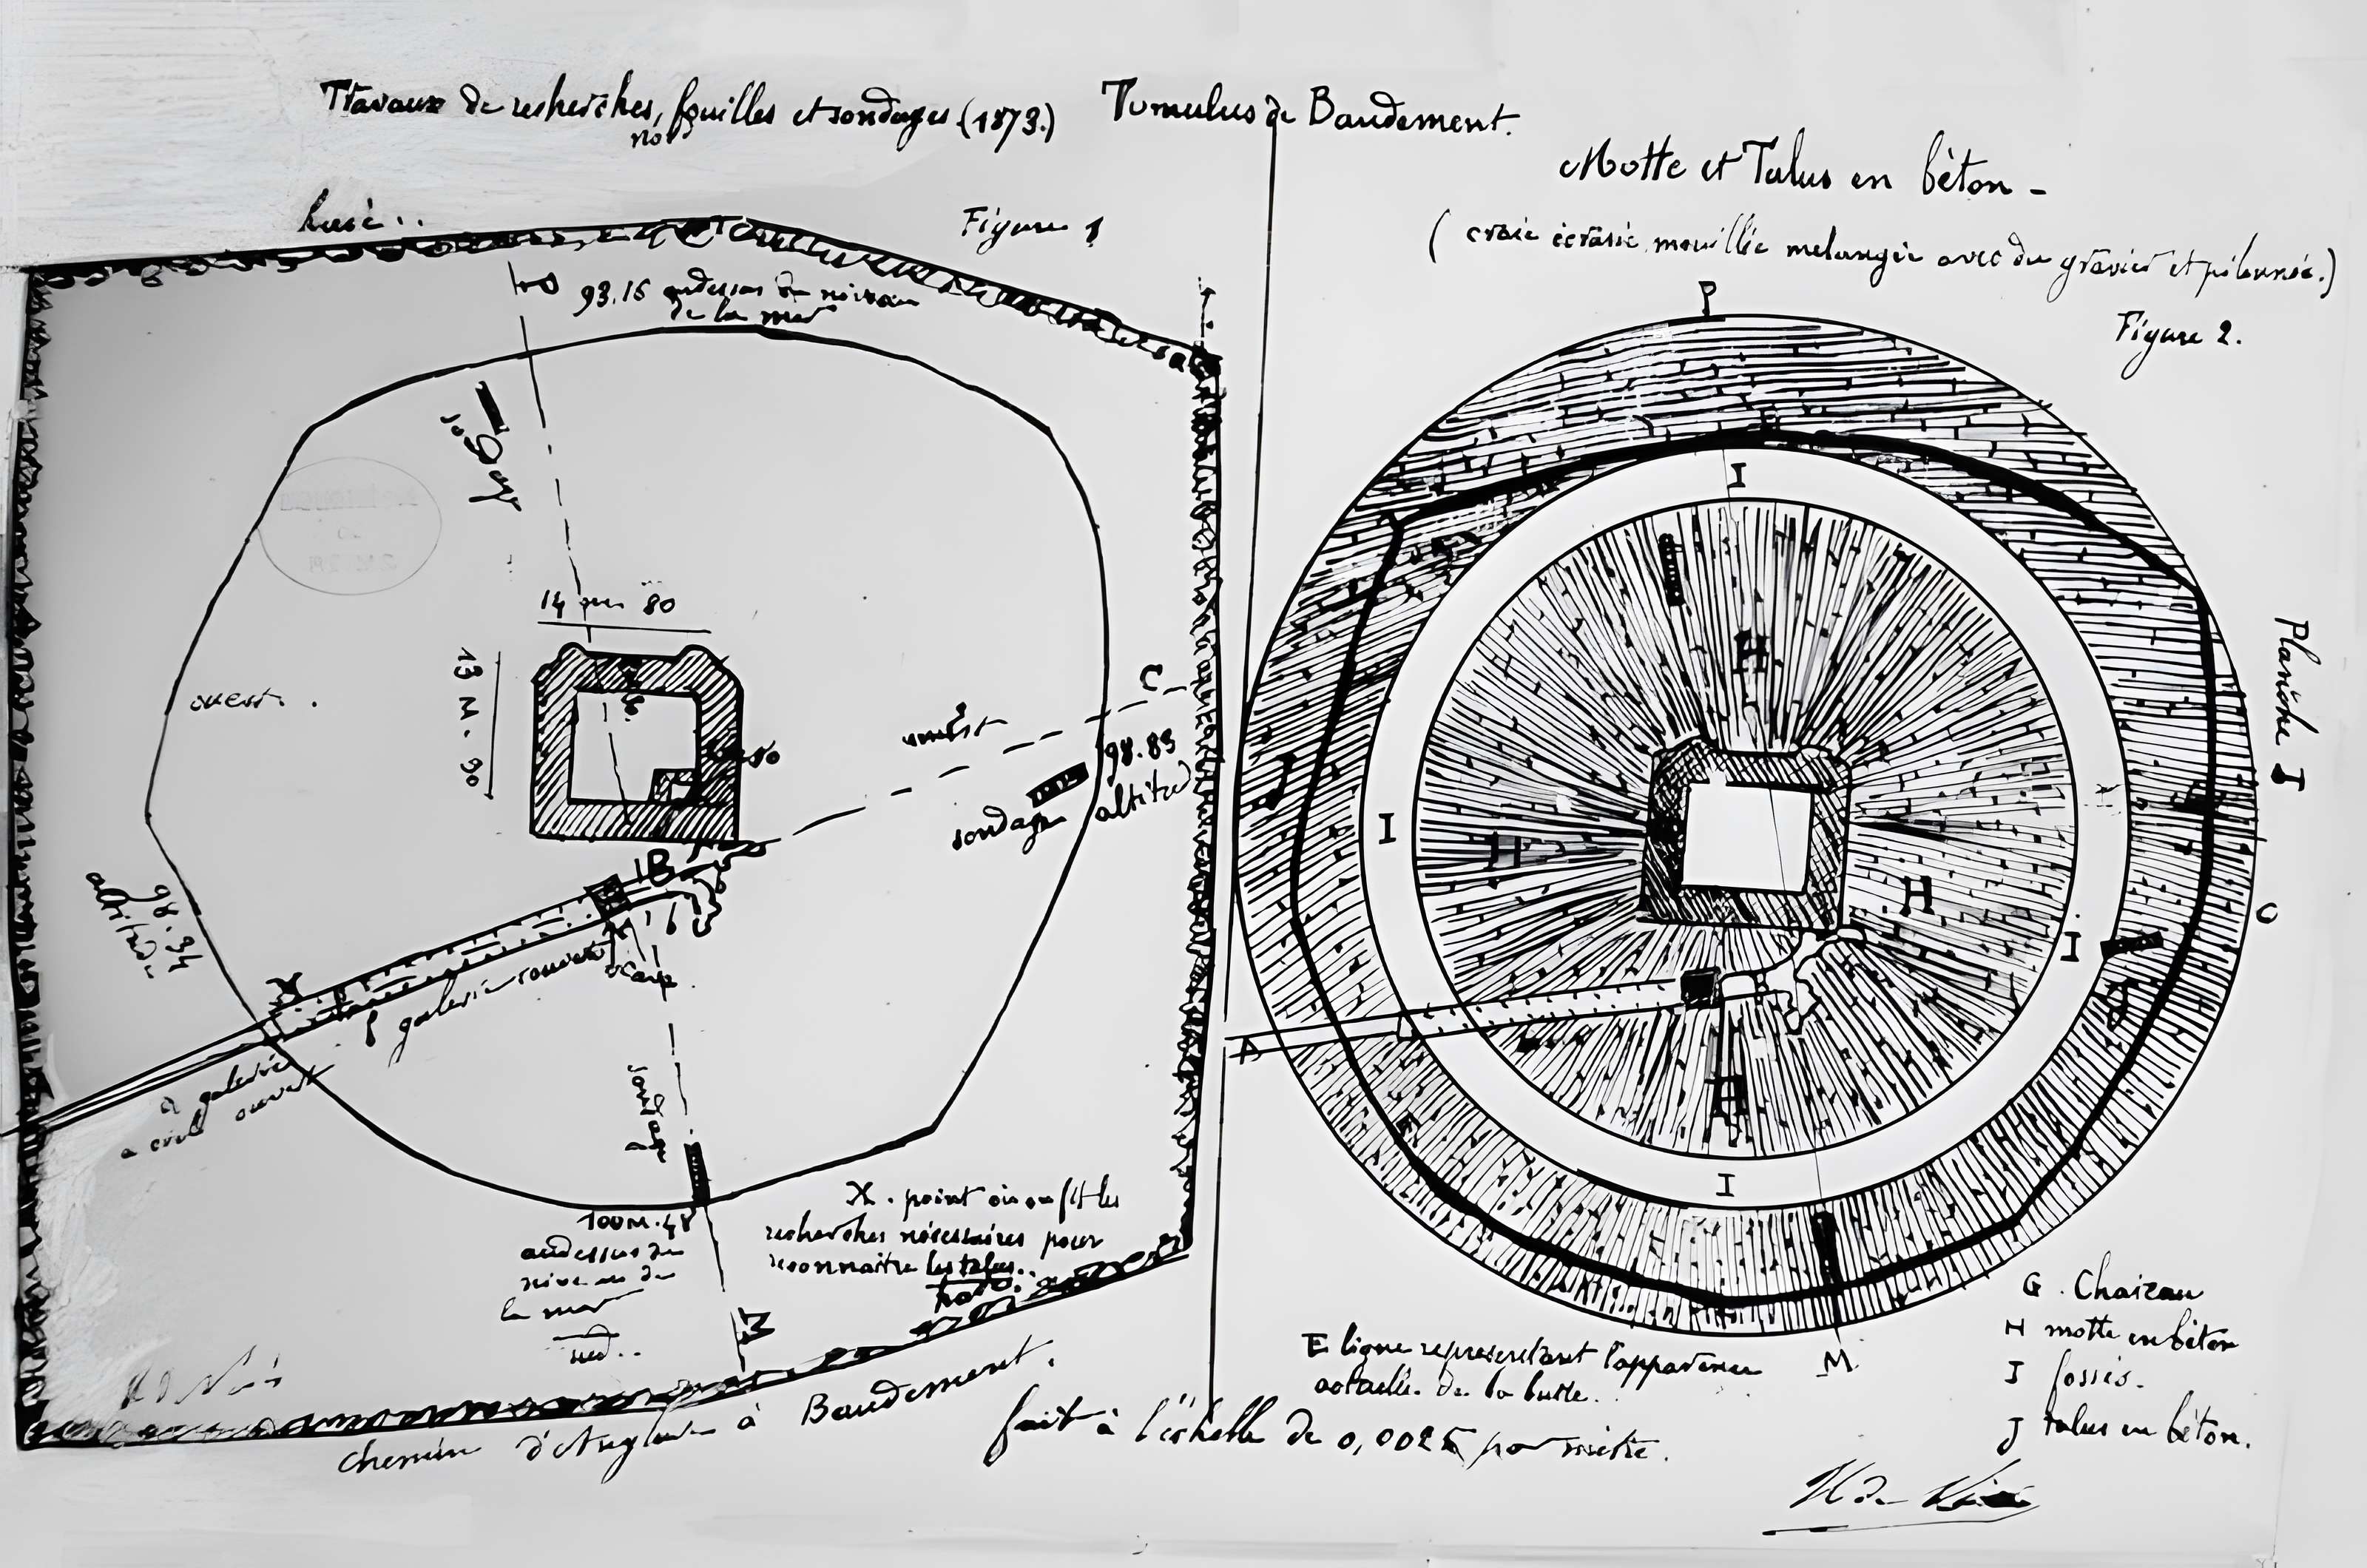 Travaux de recherches, fouilles et sondages (1873.) Tumulus de Baudement.
nord
Motte et Talus en béton -
(craie écrasée mouillée melangée avec du gravier et pilonnée.)
Figure 1
Figure 2.
Planche I
93.15 audessus du niveau
de la mer
sondage
14 m 80
13 M. 90
ouest.
C
98.89
altitude
sondage
B
98.94
altitude
X
galerie couverte
galerie
a ciel ouvert
sondage
100M.48
audessus du
niveau de
la mer
sud..
X. point où on fit les
recherches nécessaires pour
reconnaitre les talus..
M
chemin d'Anglure à Baudement.
P
E
I
H
J
I
H
H
I
O
J
A
H
E
I
M.
E ligne representant l'apparence
actuelle de la butte.
G. Chateau
H motte en béton
I fossés.
J talus en béton.
fait à l'échelle de 0,0025 par mètre.